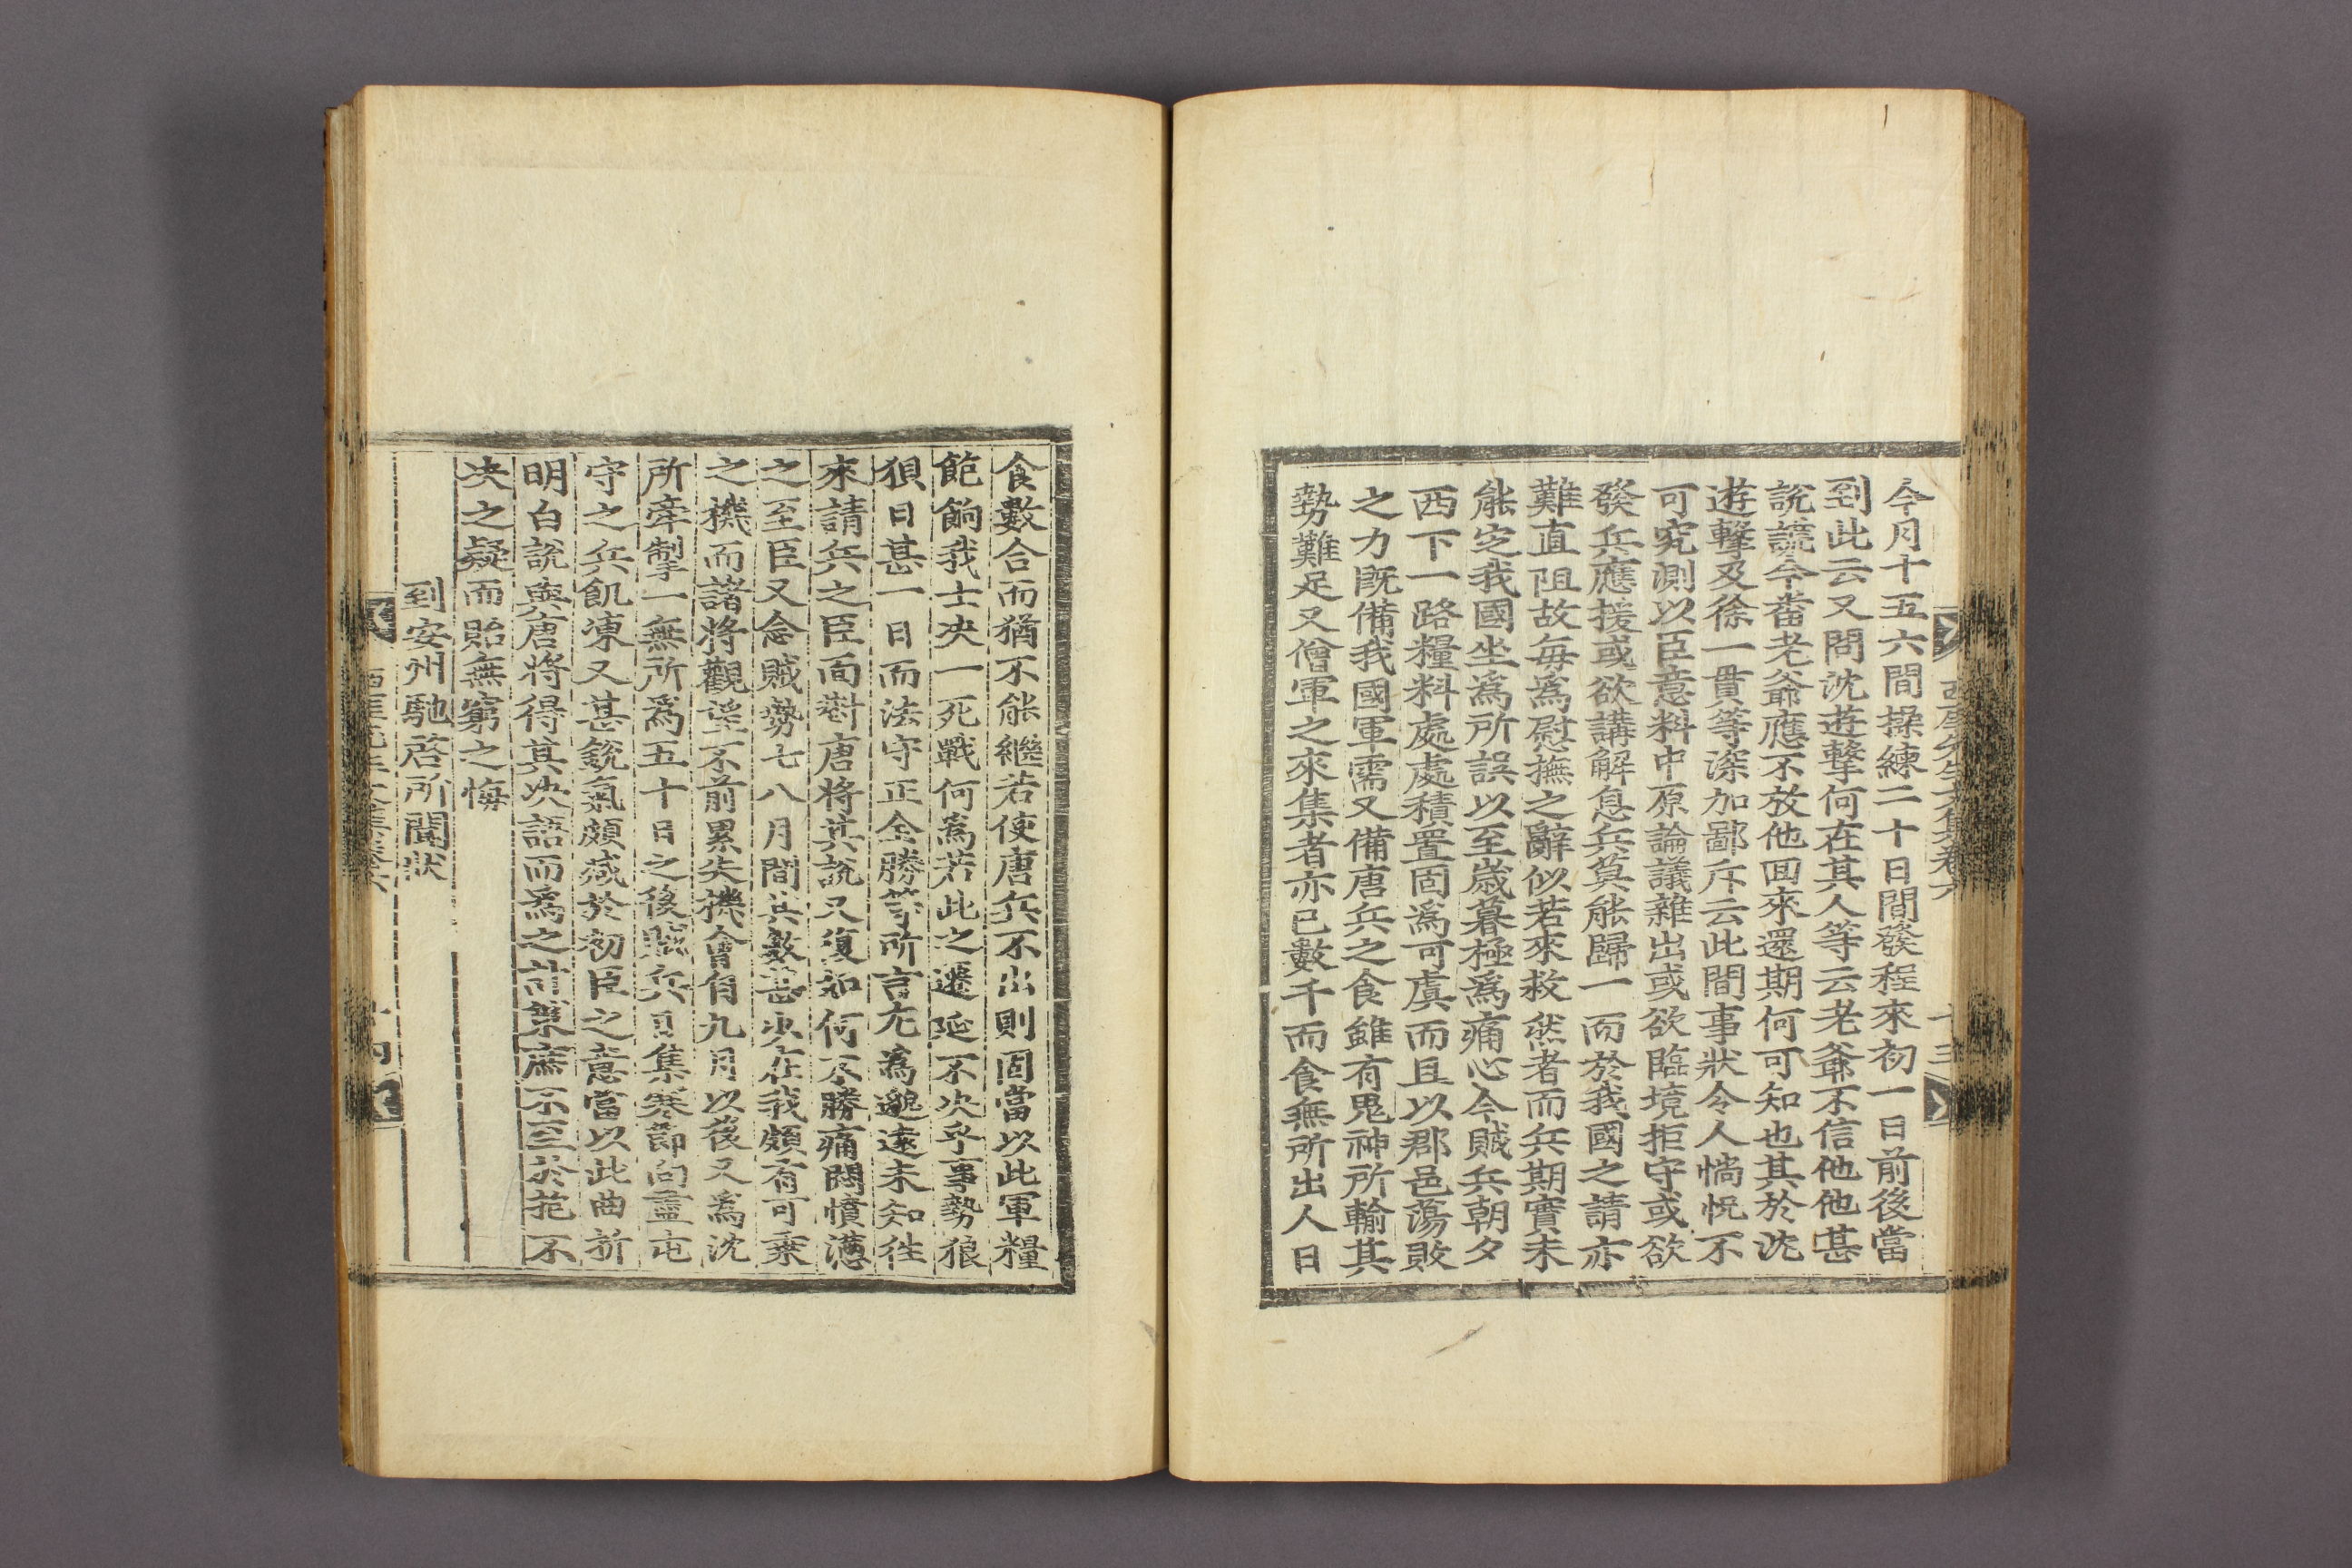 今月十五六間操練二十日間發程來初一日前後當
到此云又問沈遊擊何在其人等云老爺不信他他甚
說謊今番老爺應不放他回來還期何可知也其於沈
遊擊及徐一貫等深加鄙斥云此間事狀令人惝怳不
可究測以臣意料中原論議雜出或欲臨境拒守或欲
發兵應援或欲講解息兵莫能歸一而於我國之請亦
難直阻故每爲慰撫之辭似若來救然者而兵期實未
能定我國坐爲所誤以至歲暮極爲痛心今賊兵朝夕
西下一路糧料處處積置固爲可虞而且以郡邑蕩敗
之力旣備我國軍需又備唐兵之食雖有鬼神所輸其
勢難足又僧軍之來集者亦已數千而食無所出人日
西厓先生文集卷六
十三
食數合而猶不能繼若使唐兵不出則固當以此軍糧
飽餉我士決一死戰何爲若此之遷延不決乎事勢狼
狽日甚一日而法守正金勝等所言尤爲邈遠未知徃
來請兵之臣面對唐將其說又復如何不勝痛悶憤懣
之至臣又念賊勢七八月間其數甚少在我頗有可乘
之機而諸將觀望不前累失機會自九月以後又爲沈
所牽掣一無所爲五十日之後賊兵更集寒節向盡屯
守之兵飢凍又甚銳氣頗减於初臣之意當以此曲折
明白說與唐將得其決語而爲之計策庶不至於苑不
決之疑而貽無窮之悔
到安州馳啓所聞狀
西厓先生文集卷六
十四